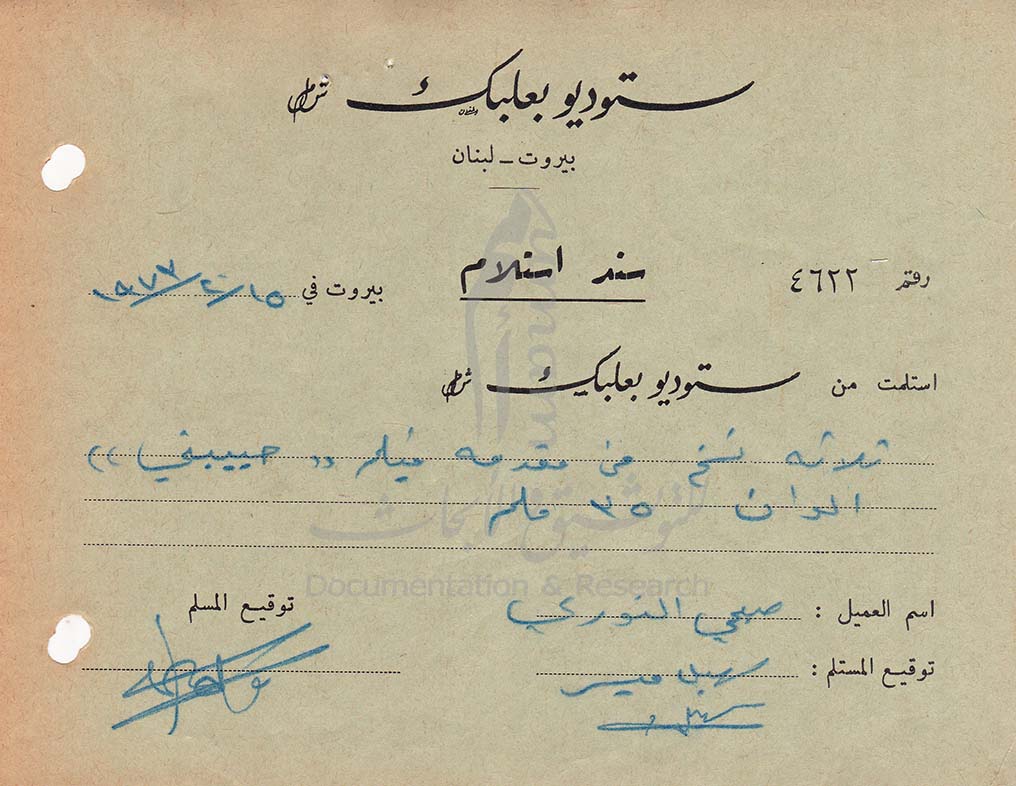 ستوديو بعلبك ش.م.ل
بيروت - لبنان
رقم ٤٦٢٢
سند استلام
بيروت في ١٥/٢/١٩٧٣
استلمت من ستوديو بعلبك ش.م.ل
ثلاثه نسخ من مقدمه فيلم « حبيبتي »
الوان ٣٥ ملم
Documentation & Research
اسم العميل : صبحي النوري
توقيع المسلم
توقيع المستلم :